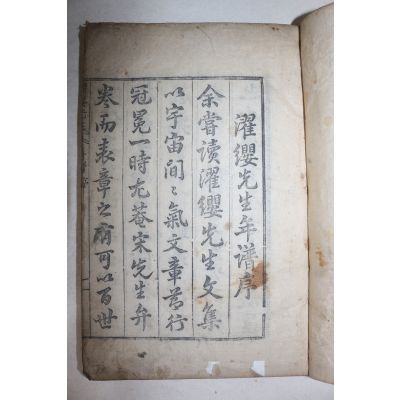 濯纓先生年譜序
余嘗讀濯纓先生文集
以宇宙間〻氣文章節行
冠冕一時尤菴宋先生弁
卷而表章之廟可以百世